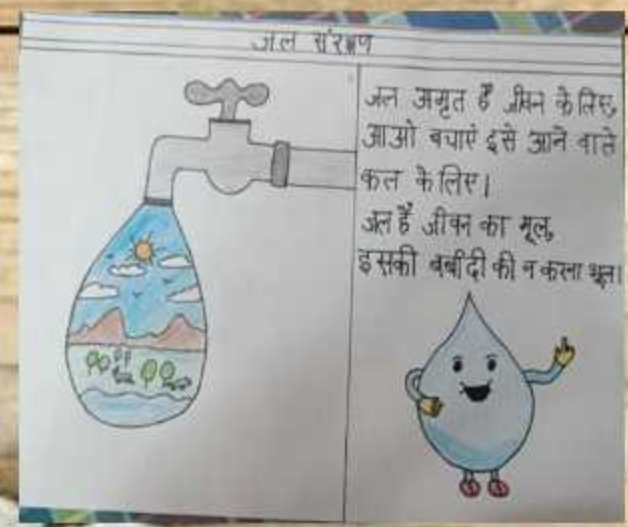 जल संरक्षण
जल अमृत है जीवन के लिए,
आओ बचाएं इसे आने वाले
कल के लिए।
जल है जीवन का मूल,
इसकी बर्बादी की न करना भूल।